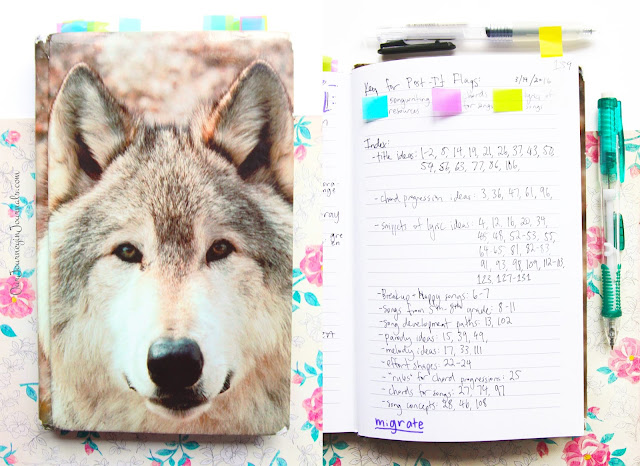 OurJourneyinJournals.com
139
Key for Post-It Flags: 3/14/2016
songwriting resources
chords for songs
lyrics of songs
Index:
-title ideas: 1-2, 5, 14, 19, 21, 26, 37, 43, 50,
54, 56, 63, 77, 86, 106,
-chord progression ideas: 3, 36, 47, 61, 96,
-snippets of lyric ideas: 4, 12, 16, 20, 39,
45, 48, 52-53, 55,
64-65, 81, 82-83
91, 93, 98, 109, 112-113,
123, 127-131
-Break-up - Happy songs: 6-7
-songs from 5th-8th grade: 8-11
-song development paths: 13, 102
-parody ideas: 15, 39, 49,
-melody ideas: 17, 33, 111
-effort shapes: 22-24
-"rules" for chord progressions: 25
-chords for songs: 27, 79, 97
-song concepts: 28, 46, 108
migrate